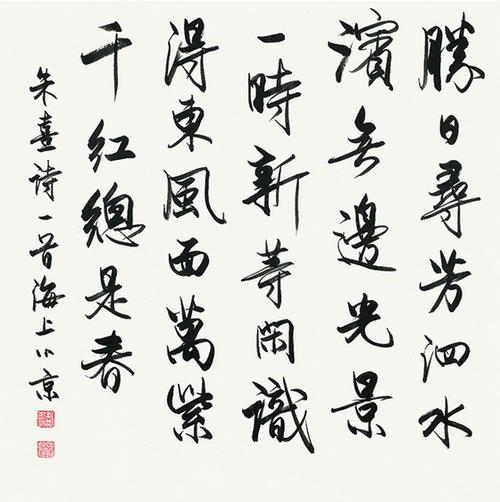 勝日尋芳泗水
濱無邊光景
一時新等閒識
得東風面萬紫
千紅總是春
朱熹詩一首海上小京